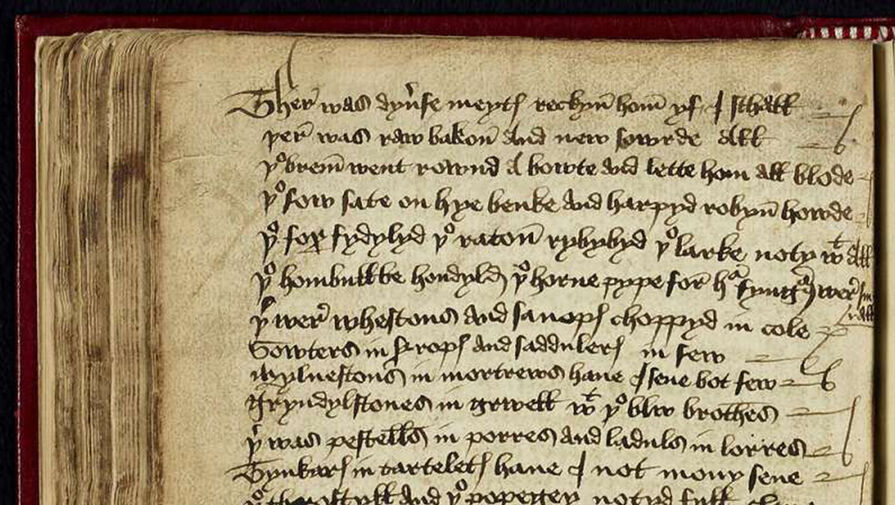 Ther was dynse meyts rechyn hom yf I schall
þer was raw bakon and new sowrde all
þe brem went rownd a bowte and lette hom all blode
þe sow sate on hye benke and harpyd robyn howde
þe fox fydylyd þe raton rybybyd þe larke notyd wt all
þe hombulbe hondyld þe horne pype for hr fyngers wer smalle
þer wer whestons and fawsyps choppyd in cole
Sowters in syrops and saddulers in sew
mylnestons in mortrews haue I sene bot few
gryndylstones in grwell wt þe blw brothes
þer was pestells in porres and laduls in lorres
Tynkars in tartelets haue I not mony sene
þe throstyll and þe popegey notyd full